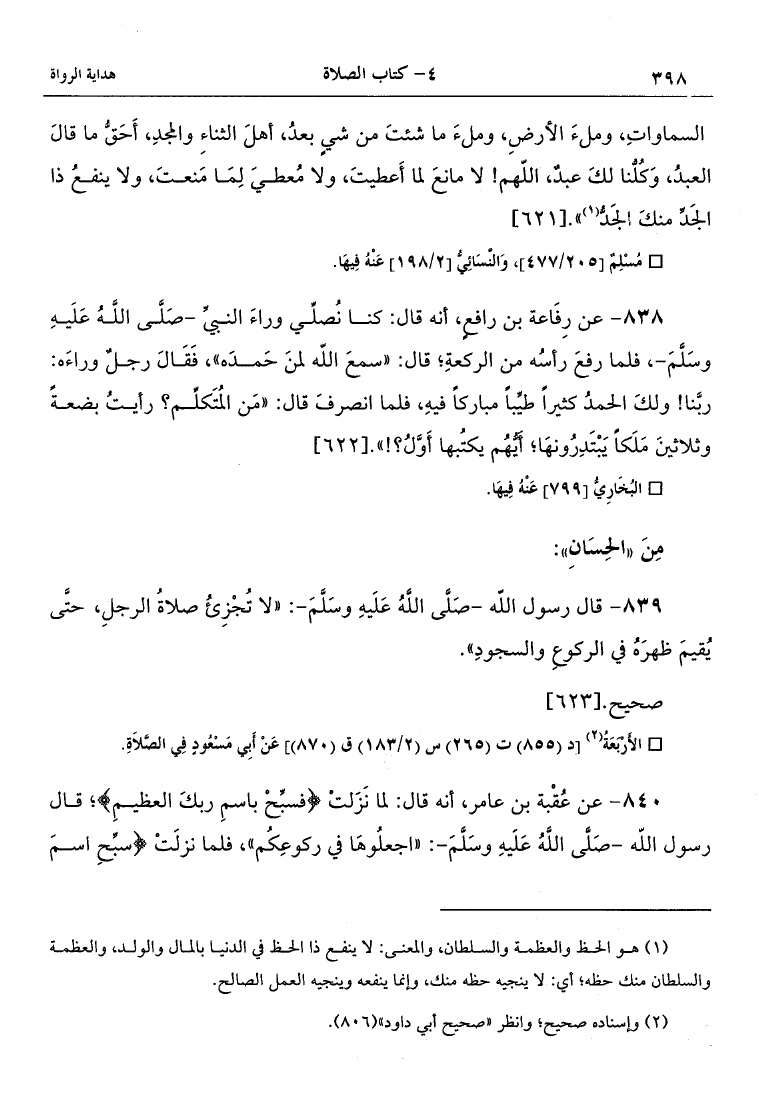 ٣٩٨ ٤- كتاب الصلاة هداية الرواة
السماواتِ، وملءَ الأرضِ، وملءَ ما شئتَ من شيءٍ بعدُ، أهلَ الثناءِ والمجدِ، أَحَقُّ ما قالَ
العبدُ، وَكُلُّنا لكَ عبدٌ، اللّهم! لا مانعَ لما أَعطيتَ، ولا مُعطيَ لِمَا مَنعتَ، ولا ينفعُ ذا
الجَدِّ منكَ الجَدُّ(١)».[٦٢١]
□ مُسْلِمٌ [٤٧٧/٢٠٥]، وَالنَّسَائِيُّ [١٩٨/٢] عَنْهُ فِيهَا.
٨٣٨- عن رِفَاعة بن رافعٍ، أنه قال: كنا نُصلّي وراءَ النبيِّ -صَلَّى اللَّهُ عَلَيهِ
وسَلَّمَ-، فلما رفعَ رأسُه من الركعةِ؛ قال: «سمعَ اللّه لمنَ حَمدَه»، فَقَالَ رجلٌ وراءَه:
ربَّنا! ولكَ الحمدُ كثيراً طيِّباً مباركاً فيهِ، فلما انصرفَ قال: «مَن المُتَكلِّم؟ رأيتُ بضعةً
وثلاثينَ مَلَكاً يَبْتَدِرُونهَا؛ أيُّهُم يكتُبها أوَّلُ؟!».[٦٢٢]
□ البُخَارِيُّ [٧٩٩] عَنْهُ فِيهَا.
مِنَ «الحِسَانِ»:
٨٣٩- قال رسول اللّه -صَلَّى اللَّهُ عَلَيهِ وسَلَّمَ-: «لا تُجْزِئُ صلاةُ الرجلِ، حتَّى
يُقيمَ ظهرَهُ في الركوعِ والسجودِ».
صحيح.[٦٢٣]
□ الأَرْبَعَةُ(٢) [د (٨٥٥) ت (٢٦٥) س (١٨٣/٢) ق (٨٧٠)] عَنْ أَبِي مَسْعُودٍ فِي الصَّلاَةِ.
٨٤٠- عن عُقْبة بن عامر، أنه قال: لما نَزَلتْ ﴿فسبِّحْ باسمِ ربكَ العظيمِ﴾؛ قال
رسول اللّه -صَلَّى اللَّهُ عَلَيهِ وسَلَّمَ-: «اجعلُوهَا في ركوعِكُم»، فلما نزلَتْ ﴿سبِّحِ اسمَ
(١) هو الحظ والعظمة والسلطان، والمعنى: لا ينفع ذا الحظ في الدنيا بالمال والولد، والعظمة
والسلطان منك حظه؛ أي: لا ينجيه حظه منك، وإنما ينفعه وينجيه العمل الصالح.
(٢) وإسناده صحيح؛ وانظر «صحيح أبي داود»(٨٠٦).